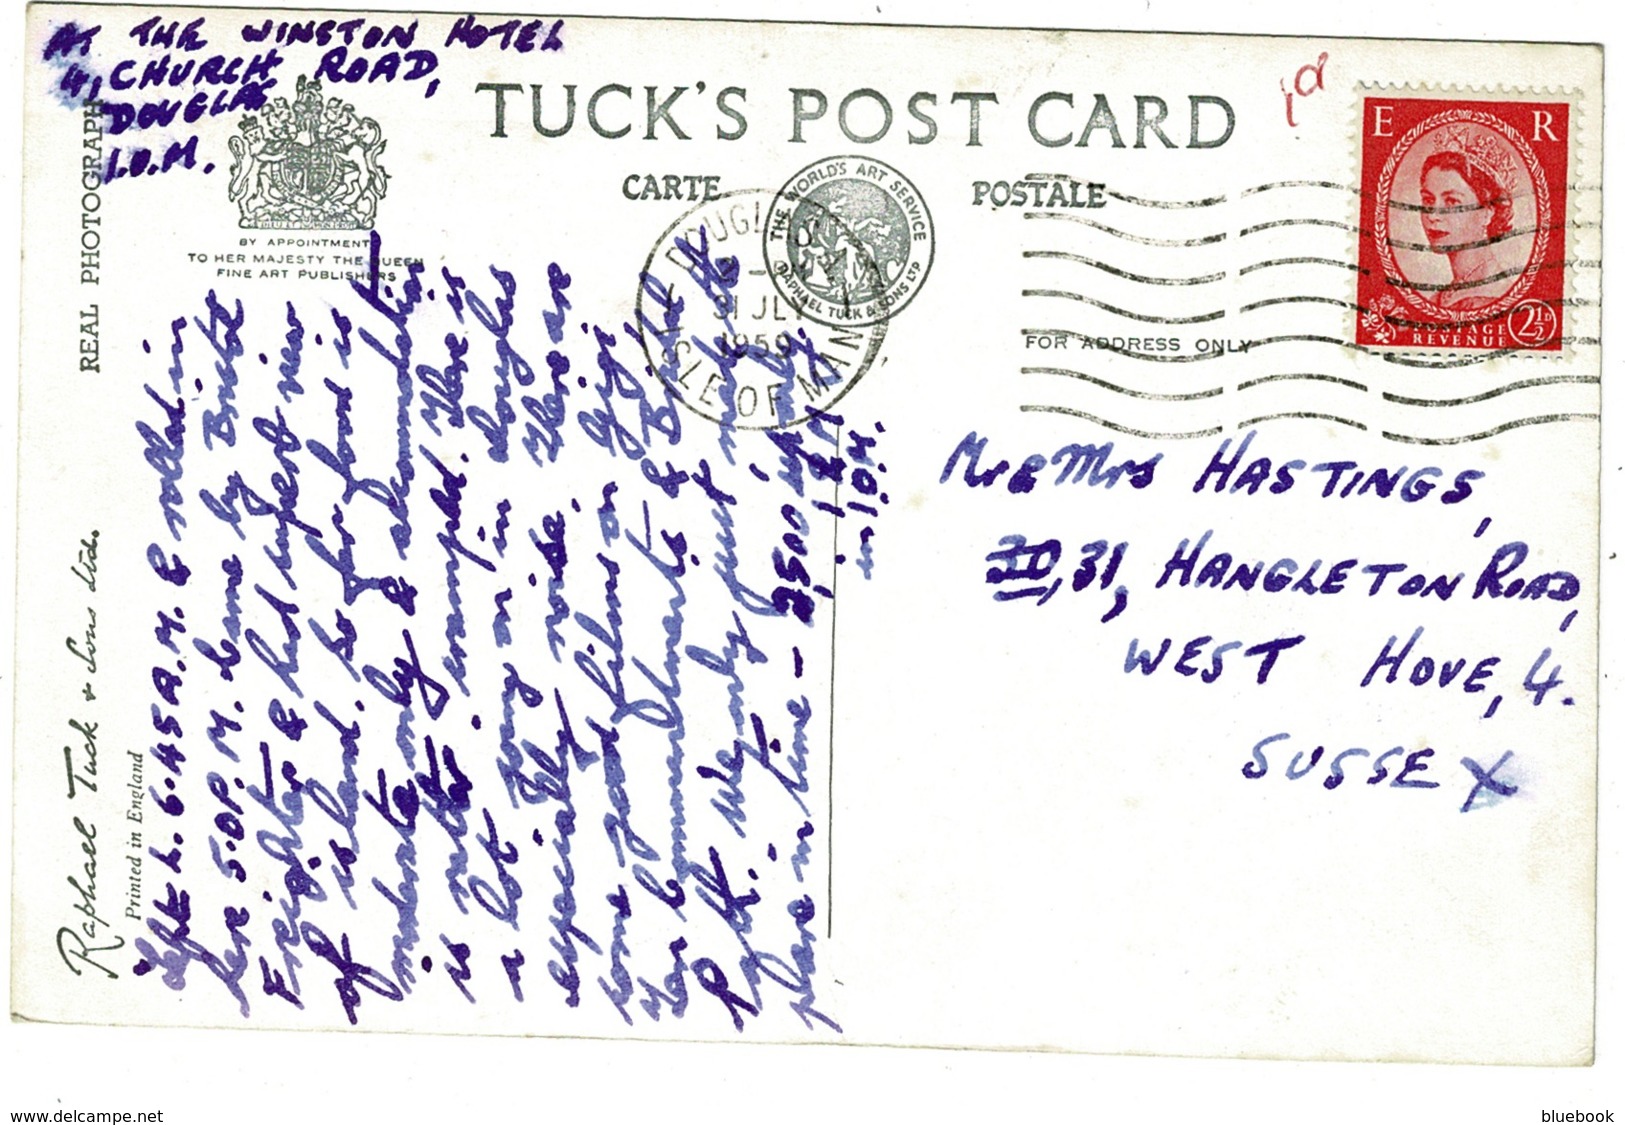 AT THE WINSTON HOTEL
4, CHURCH ROAD,
DOUGLAS
I.O.M.
REAL PHOTOGRAPH
BY APPOINTMENT
TO HER MAJESTY THE QUEEN
FINE ART PUBLISHERS
TUCK'S POST CARD
CARTE POSTALE
THE WORLD'S ART SERVICE
RAPHAEL TUCK & SONS LTD
DOUGLAS
31 JLY
1959
ISLE OF MAN
1a
E R
POSTAGE
REVENUE
2½D
FOR ADDRESS ONLY
Raphael Tuck & Sons Ltd.
Printed in England
Left L. 6.45 A.M. & rolled in
here 5.0 P.M. Came by Bristol
Freighter & had superb view
of island. So far food is
moderate only & accommodation
is rather cramped. There is
a lot going on in Douglas
especially nude. There are
some good films on Gigi
Ten Commandments &
Wendy just made the
plane in time - 2,500
in I.O.M.
Mr & Mrs HASTINGS,
30, 31, HANGLETON ROAD,
WEST HOVE, 4.
SUSSEX
www.delcampe.net
bluebook